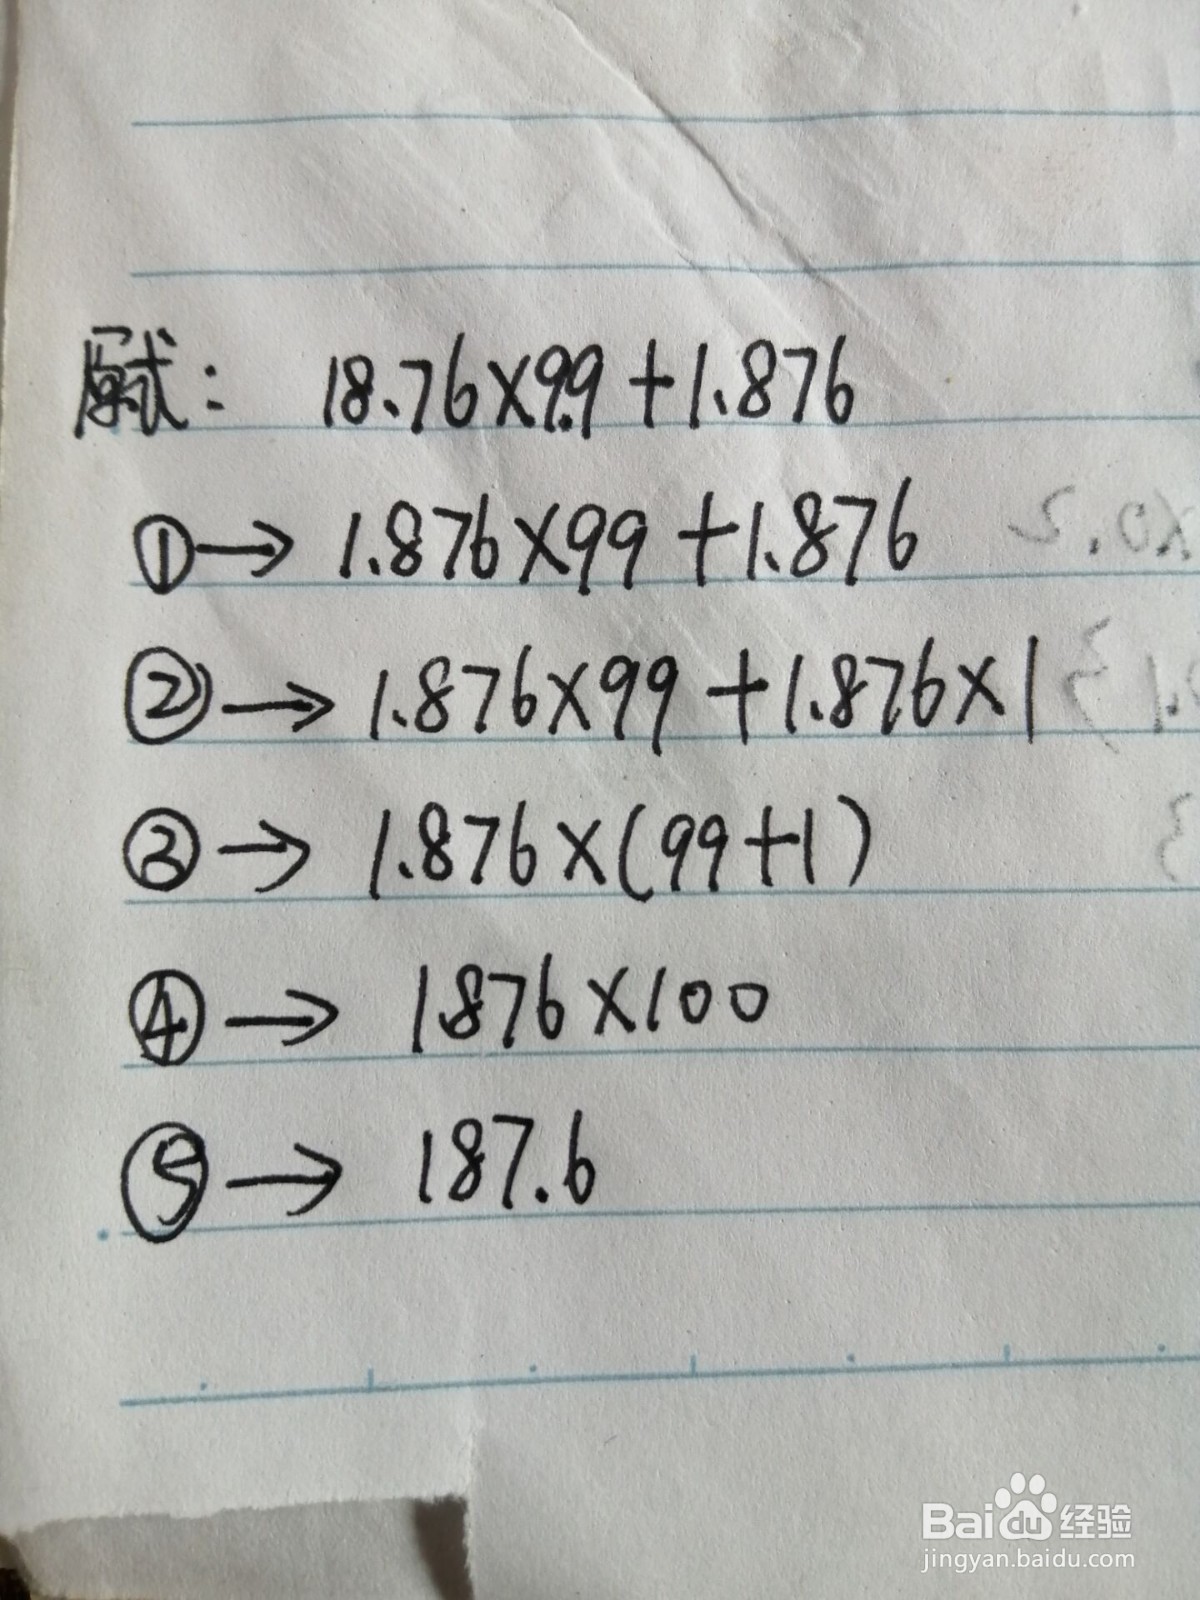 原式: 18.76×9.9+1.876
①→ 1.876×99+1.876
②→ 1.876×99+1.876×1
③→ 1.876×(99+1)
④→ 1876×100
⑤→ 187.6
Baidu经验
jingyan.baidu.com